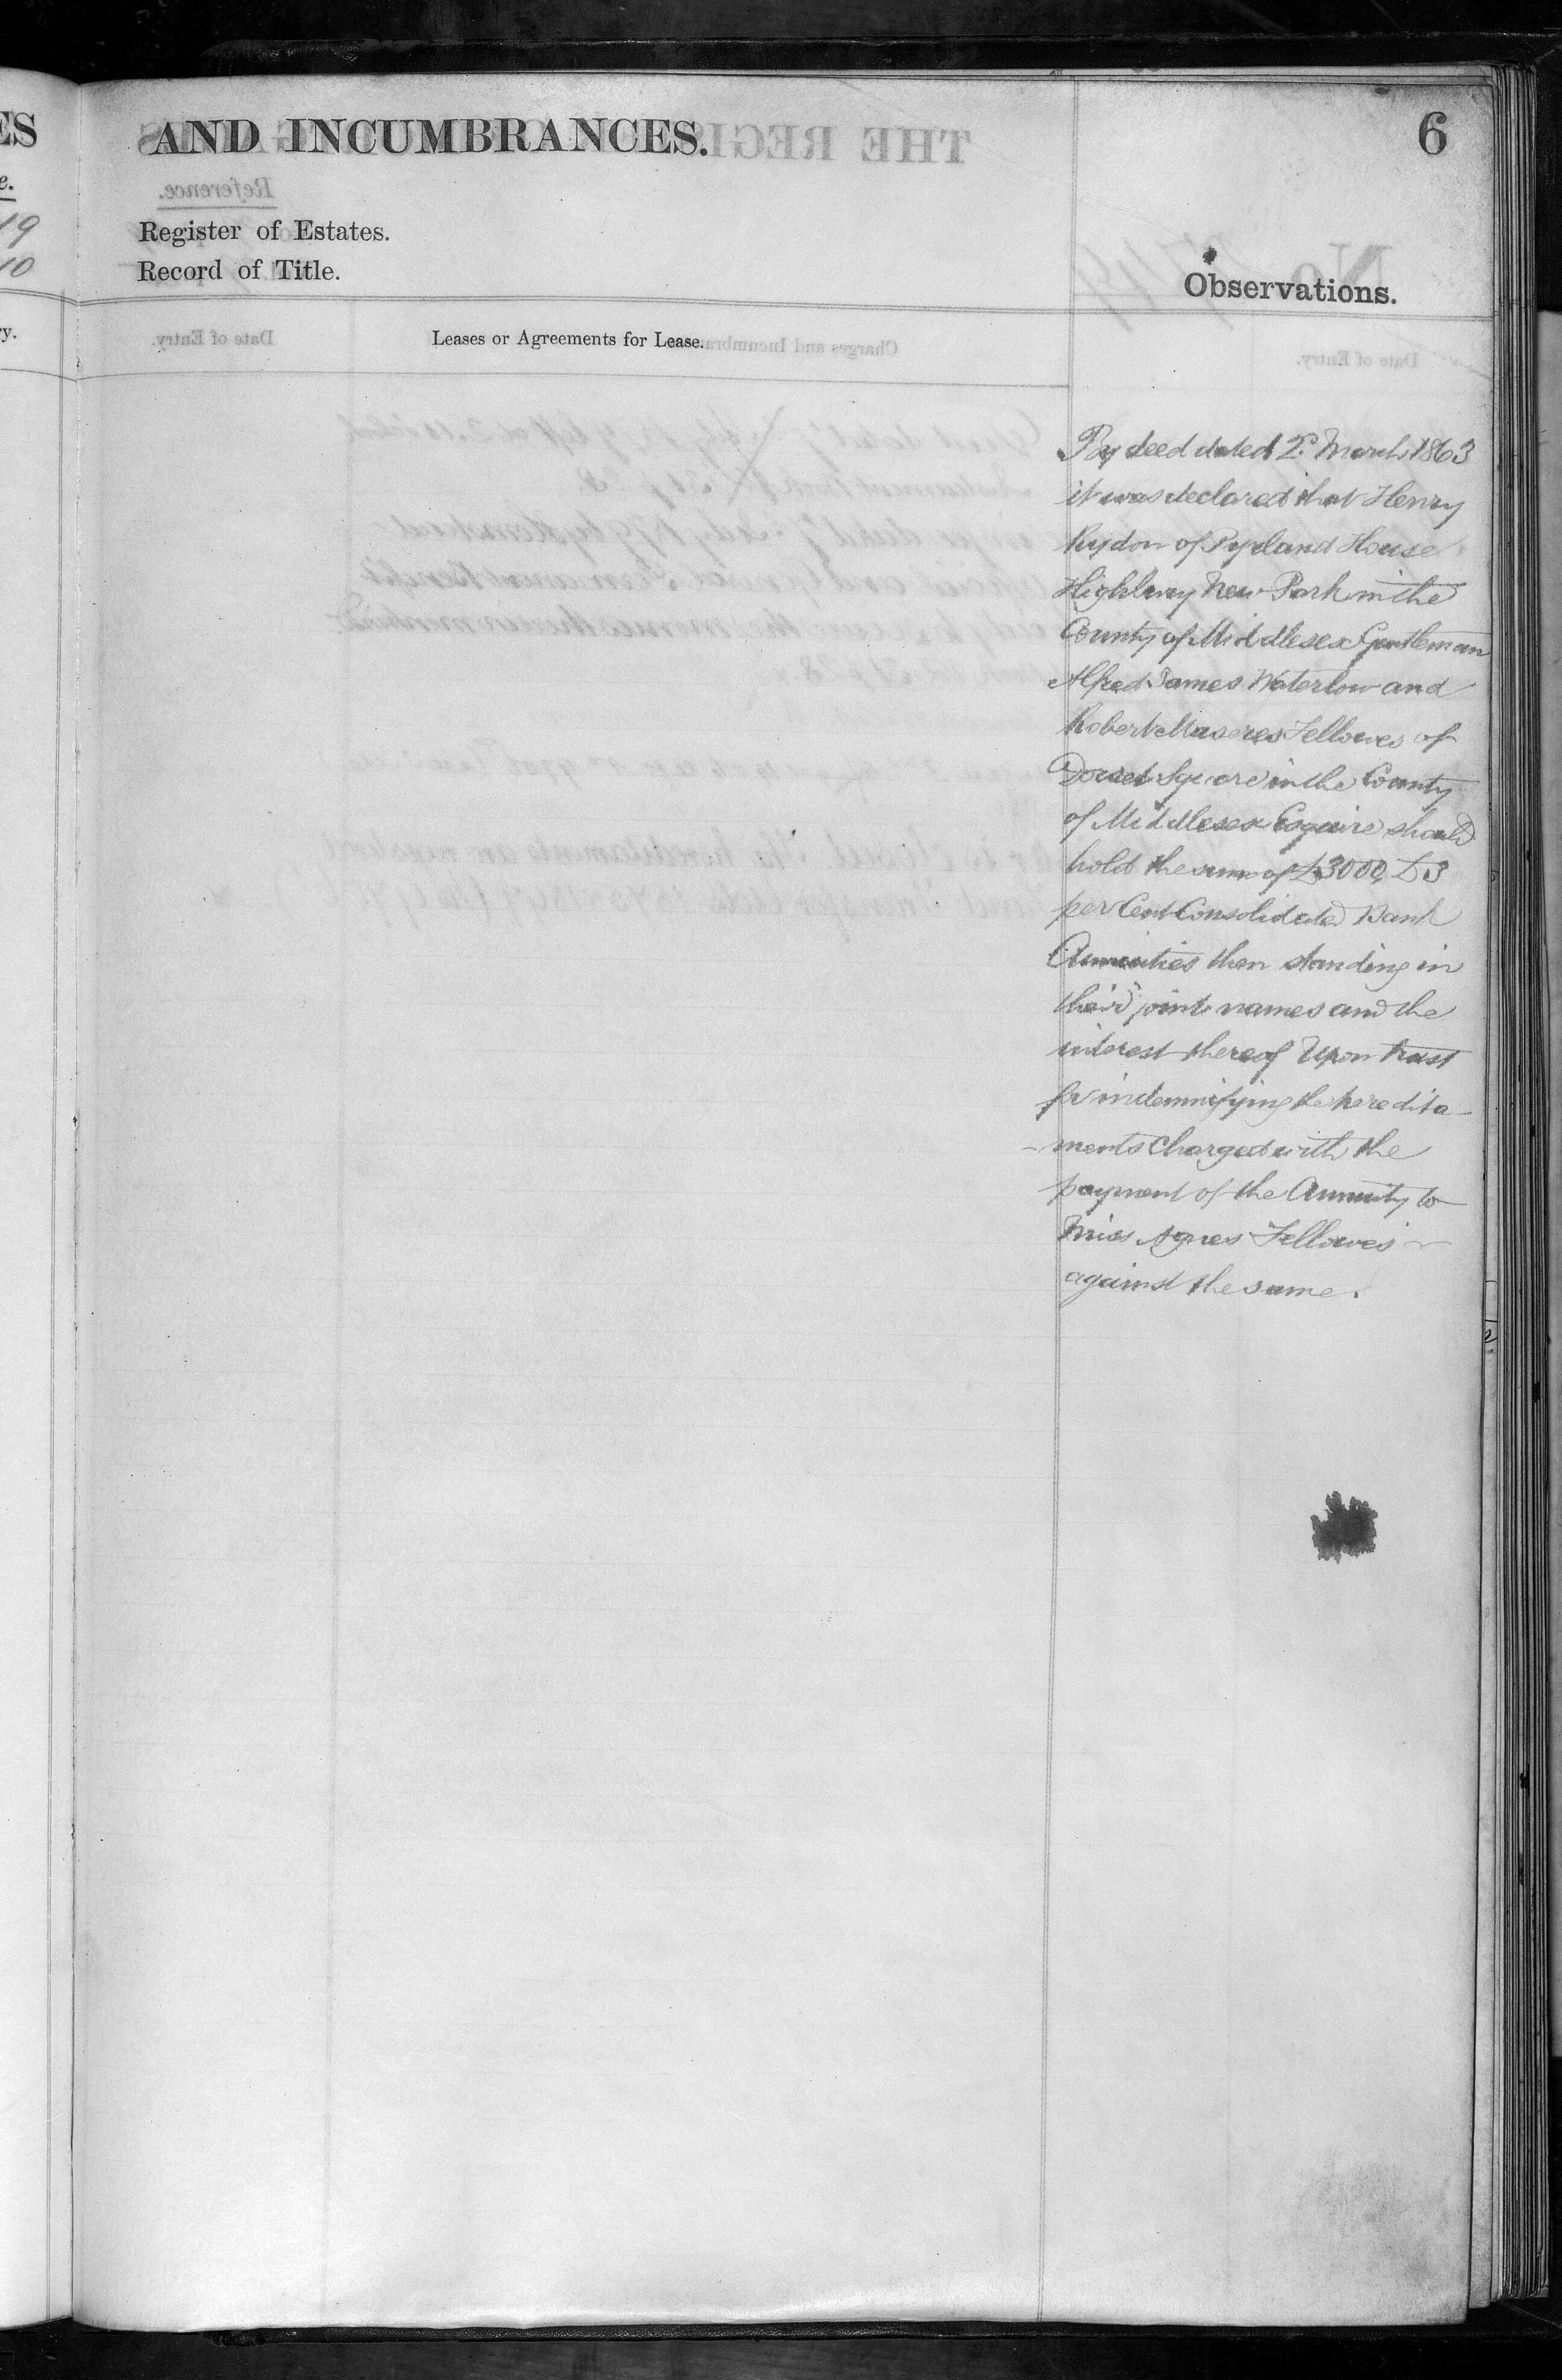 ES
e.
19
10
y.
AND INCUMBRANCES.
6
Register of Estates.
Record of Title.
Observations.
Leases or Agreements for Lease.
By deed dated 2d March 1863
it was declared that Henry
Rydon of Pyrland House
Highbury New Park in the
County of Middlesex Gentleman
Alfred James Waterlow and
Robert Maseres Fellowes of
Dorset Square in the County
of Middlesex Esquire should
hold the sum of £3000, £3
per Cent Consolidated Bank
Annuities then standing in
their joint names and the
interest thereof Upon trust
for indemnifying the heredita-
-ments charged with the
payment of the Annuity to
Miss Agnes Fellowes
against the same.